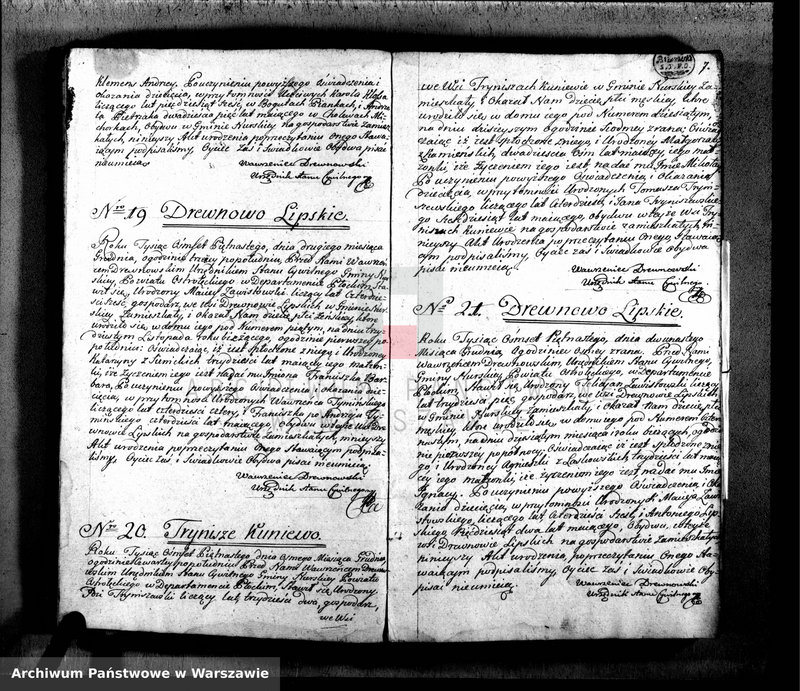 Klemens Andrzey. Po uczynieniu powyższego Oświadczenia i
okazania dziecięcia, w przytomności
liczącego lat pięćdziesiąt sześć, w Bogutach Piankach, i Andrze
ia Pietraka dwadzieścia pięć lat maiącego w
Obydwu w Gminie Nurskiey na gospodarstwie Zamiesz
kałych ninieyszy Akt urodzenia po przeczytaniu onego Stawa
iącym podpisaliśmy, Oyciec zaś i Świadkowie Obydwa pisać
nieumieią
Wawrzeniec Drewnowski
Urzędnik Stanu Cywilnego
Nro 19 Drewnowo Lipskie.
Roku Tysiąc Ośmset Piętnastego, dnia drugiego miesiąca
Grudnia, ogodzinie trzeciey popołudniu, Przed Nami Wawrzeń
cem Drewnowskim Urzędnikiem Stanu Cywilnego Gminy Nur
skiey, Powiatu Ostrołęckiego w Departamencie Płockim, Sta
wił się, Urodzony Maciey Zawistowski, liczący lat Czterdzie
ści sześć, gospodarz, we wsi Drewnowie Lipskich, w Gminie Nur
skiey Zamieszkały, i okazał Nam dziecię płci żeńskiey, które
urodziło się, w domu iego pod Numerem piątym, na dniu trzy
dziestym Listopada roku bieżącego, ogodzinie pierwszey po
południu: Oświadczaiąc, iż iest spłodzone z niego i Urodzoney
Katarzyny z Tymińskich trzydzieści lat maiącey iego małżon
ki, iż życzeniem iego iest nadać mu Imiona Franciszka Bar
bara, Po uczynieniu powyższego Oświadczenia i okazaniu dzie
cięcia, w przytomności Urodzonych Wawrzeńca Tymińskiego
liczącego lat czterdzieści cztery, i Franciszka po Andrzeju Ty
mińskiego, czterdzieści lat maiącego, obydwu w teyże wsi Dre
wnowie Lipskich na gospodarstwie Zamieszkałych, ninieyszy
Akt urodzenia poprzeczytaniu Onego Stawaiącym podpisa
liśmy, Oyciec zaś i Świadkowie Obydwa pisać nieumieią
Wawrzeniec Drewnowski
Urzędnik Stanu Cywilnego
Nro 20. Trynisze Kuniewo.
Roku Tysiąc Ośmset Piętnastego dnia Osmego Miesiąca Grudnia,
ogodzinie czwartey popołudniu Przed Nami Wawrzeńcem Drewno
wskim Urzędnikiem Stanu Cywilnego Gminy Nurskiey Powiatu
Ostrołęckiego w Departamencie Płockim, Stawił się Urodzony
Tryniszewski liczący lat trzydzieści dwa, gospodarz,
we Wsi
7.
we Wsi Tryniszach Kuniewie w Gminie Nurskiey Za
mieszkały, i Okazał Nam dziecię płci męskiey, które
urodziło się w domu iego pod Numerem dziesiątym,
na dniu dzisieyszym Ogodzinie siodmey zrana; Oświad
czaiąc iż iest spłodzone z niego, i Urodzoney Małgorzaty
z Zaremskich, dwadzieścia Ośm lat maiącey, iego mał
żonki, iż życzeniem iego iest nadać mu Imie Mikołay
Po uczynieniu powyższego Oświadczenia i Okazania
dziecięcia, w przytomności Urodzonych Tomasza Tryni
szewskiego liczącego lat Czterdzieści, i Jana Tryniszewskie
go Sześćdziesiąt lat maiącego, obydwu w teyże wsi Try
niszach Kuniewie na gospodarstwie zamieszkałych; ni
nieyszy Akt Urodzenia po przeczytaniu Onego, Stawaią
cym podpisaliśmy, Oyciec zaś i Świadkowie Obydwa
pisać nieumieią.
Wawrzeniec Drewnowski
Urzędnik Stanu Cywilnego.
Nro 21. Drewnowo Lipskie.
Roku Tysiąc Ośmset Piętnastego, dnia dwunastego
Miesiąca Grudnia, Ogodzinie Osmey zrana, Przed Nami
Wawrzeńcem Drewnowskim, Urzędnikiem Stanu Cywilnego,
Gminy Nurskiey Powiatu Ostrołęckiego, w Departamencie
Płockim, Stawił się Urodzony Felicjan Zawistowski liczący
lat trzydzieści pięć, gospodarz, we Wsi Drewnowie Lipskich,
w Gminie Nurskiey zamieszkały, i Okazał Nam dziecię płci
męskiey, które urodziło się, w domu iego pod Numerem
na dniu dziesiątym miesiąca i roku bieżących, ogodzi
nie pierwszey popołnocy, Oświadczaiąc iż iest spłodzone z nie
go, i Urodzoney Agnieszki z Laskowskich, trzydzieści lat maią
cey iego małżonki, iż życzeniem iego iest nadać mu Imie
Ignacy. Po uczynieniu powyższego Oświadczenia, i Oka
zania dziecięcia, w przytomności Urodzonych Macieja Zawi
stowskiego, liczącego lat Czterdzieści Sześć, i Antoniego Lip
skiego Pięćdziesiąt dwa lat maiącego, Obydwu, w teyże
wsi Drewnowie Lipskich, na gospodarstwie Zamieszkałych,
ninieyszy Akt urodzenia, poprzeczytaniu Onego Sta
waiącym podpisaliśmy, Oyciec zaś i Świadkowie Oby
dwa pisać nieumieią
Wawrzeniec Drewnowski
Urzędnik Stanu Cywilnego
Archiwum Państwowe w Warszawie